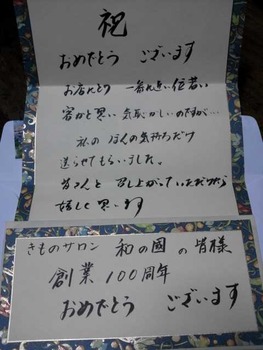 祝
おめでとう ございます
お店にとり 一番れ点い位着い
客かと思い 気恥かしいのですが…
私の ほんの気持ちだけ
送らせてもらいました。
皆さんと 召し上がっていただけたら
嬉しく思います
きものサロン 和の國 の 皆様
創業 100周年
おめでとう ございます